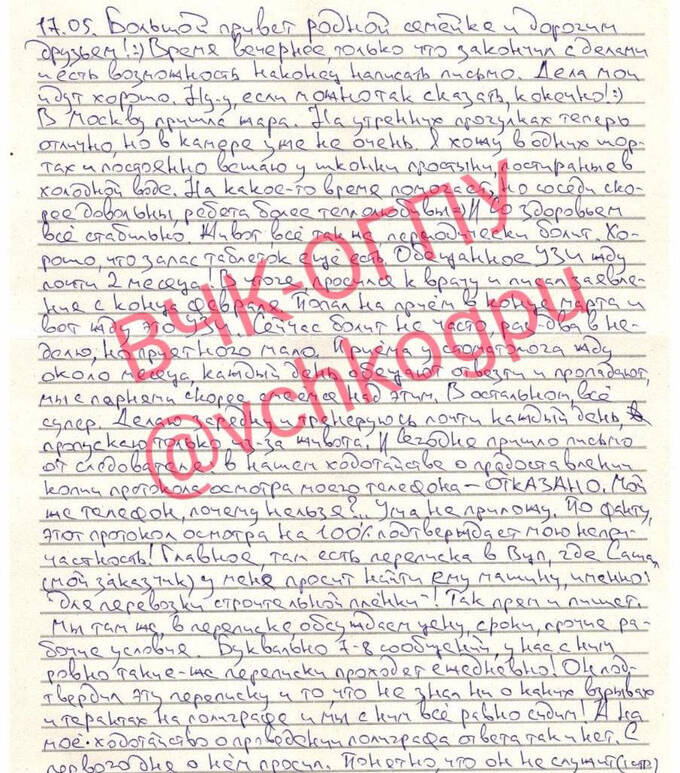 17.05. Большой привет родной семейке и дорогим
друзьям!:) Время вечернее, только что закончил с делами
и есть возможность наконец написать письмо. Дела мои
идут хорошо. Ну-у, если можно так сказать, конечно!:)
В Москву пришла жара. На утренних прогулках теперь
отлично, но в камере уже не очень. Я хожу в одних шор-
тах и постоянно вешаю у шконки простыни, постиранные в
холодной воде. На какое-то время помогает, но соседи ско-
рее довольны, ребята более теплолюбивы И со здоровьем
всё стабильно. Живот, всё так же, периодически болит. Хо-
рошо, что запас таблеток ещё есть. Обещанное УЗИ жду
почти 2 месяца! В итоге, просился к врачу и писал заявле-
ния с конца февраля. Попал на приём в конце марта и
вот жду это УЗИ. Сейчас болит не часто, раз-два в не-
делю, но приятного мало. Приёма у стоматолога жду
около месяца, каждый день обещают отвезти и пропадают,
мы с парнями скорее смеёмся над этим. В остальном, всё
супер. Делаю зарядку и тренируюсь почти каждый день,
пропускаю только из-за живота. И сегодня пришло письмо
от следователя: в нашем ходотайстве о предоставлении
копии протокола осмотра моего телефона – ОТКАЗАНО. Мой
же телефон, почему нельзя?.. Ума не приложу. По факту,
этот протокол осмотра на 100% подтверждает мою непри-
частность! Главное, там есть переписка в Вуп, где Саша
(мой заказчик) у меня просит найти ему машину, именно:
"для перевозки строительной плёнки"! Так прям и пишет.
Мы там же, в переписке, обсуждаем цену, сроки, прочие ра-
бочие условия. Буквально 7-8 сообщений, у нас с ним
ровно такие-же переписки проходят ежедневно! Он под-
твердил эту переписку и то, что не знал ни о каких взрывах
и терактах на полиграфе и мы с ним всё равно сидим! А на
моё ходотайство о проведении полиграфа ответа так и нет. С
первого дня о нём просил. Понятно, что он не служит
ВЧК-ОГПУ
@vchkogpu